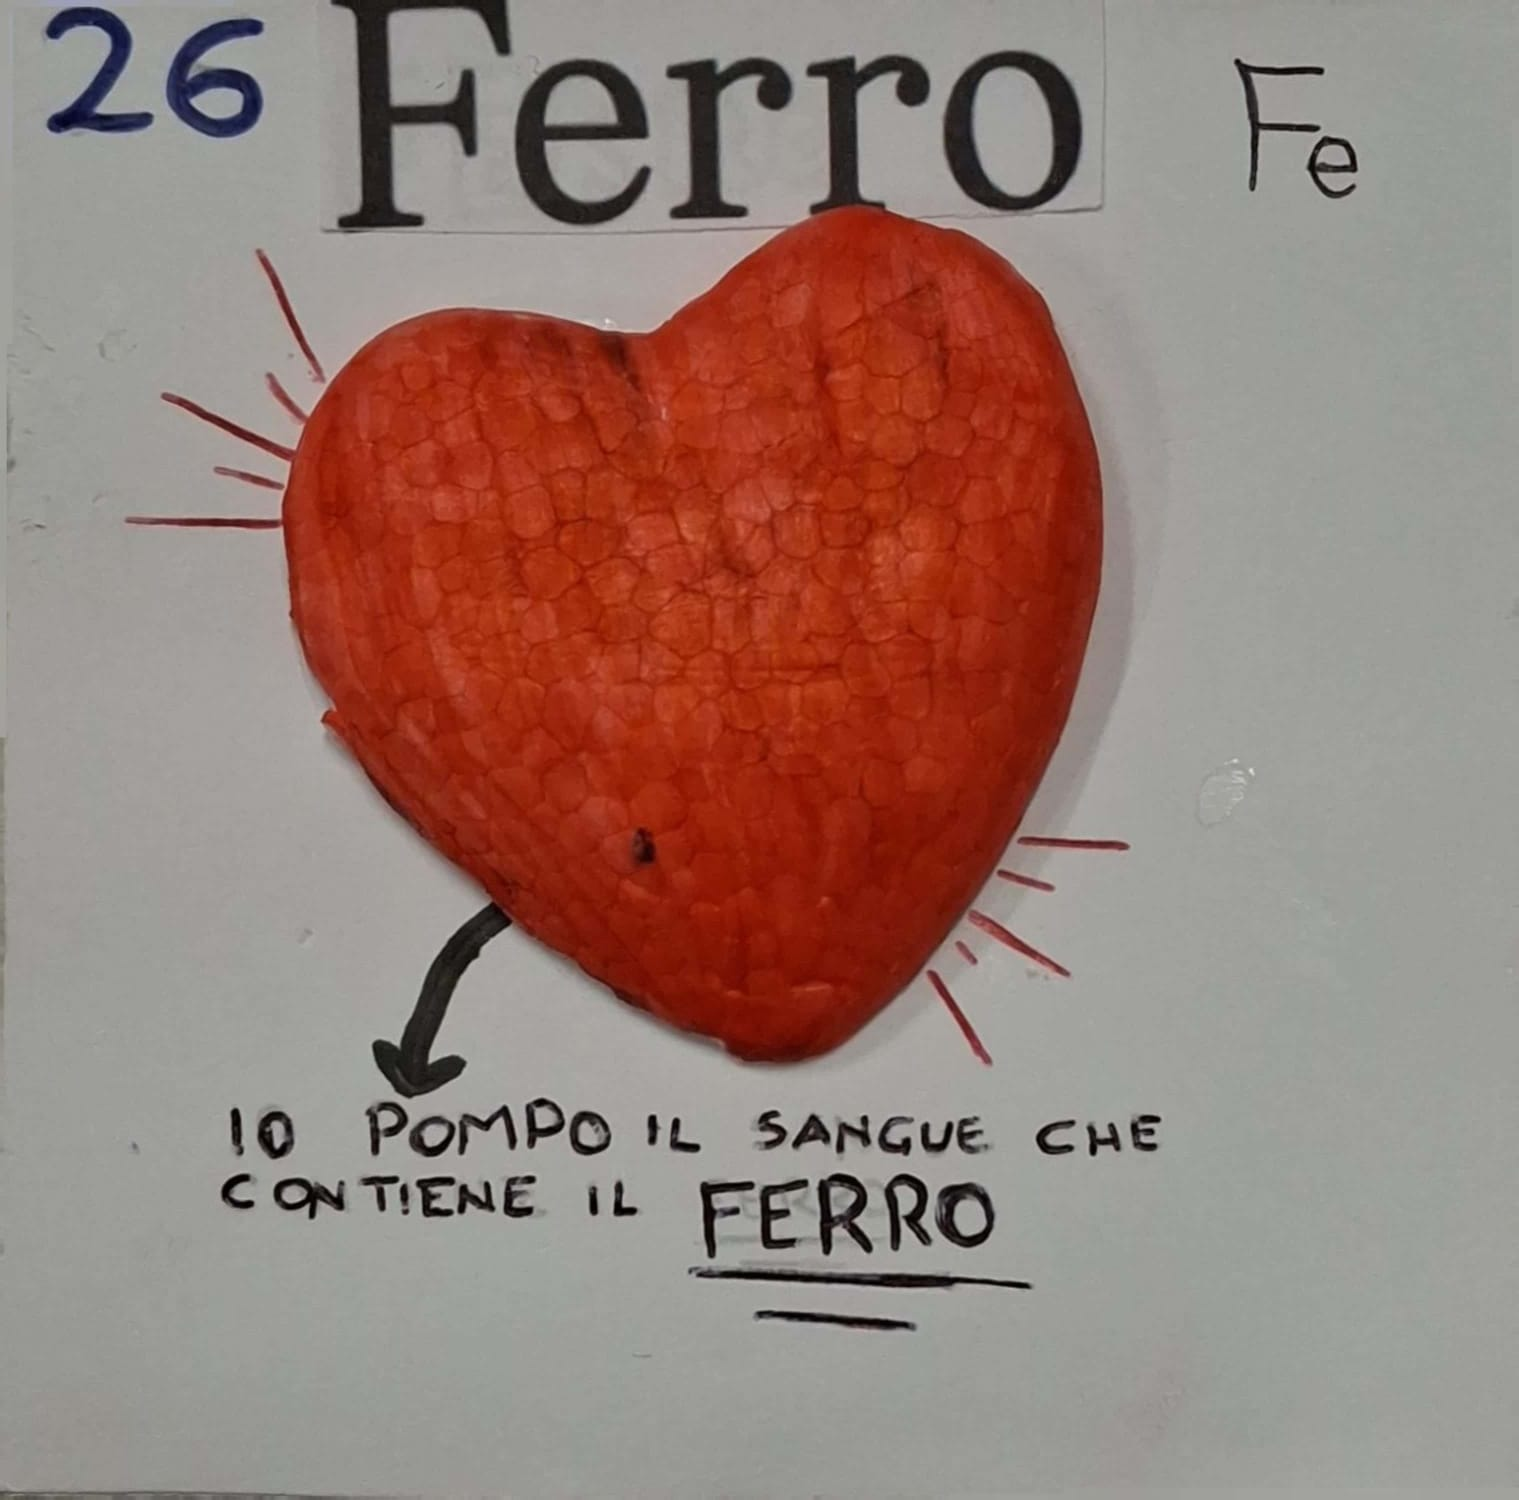 26 Ferro Fe
IO POMPO IL SANGUE CHE
CONTIENE IL FERRO